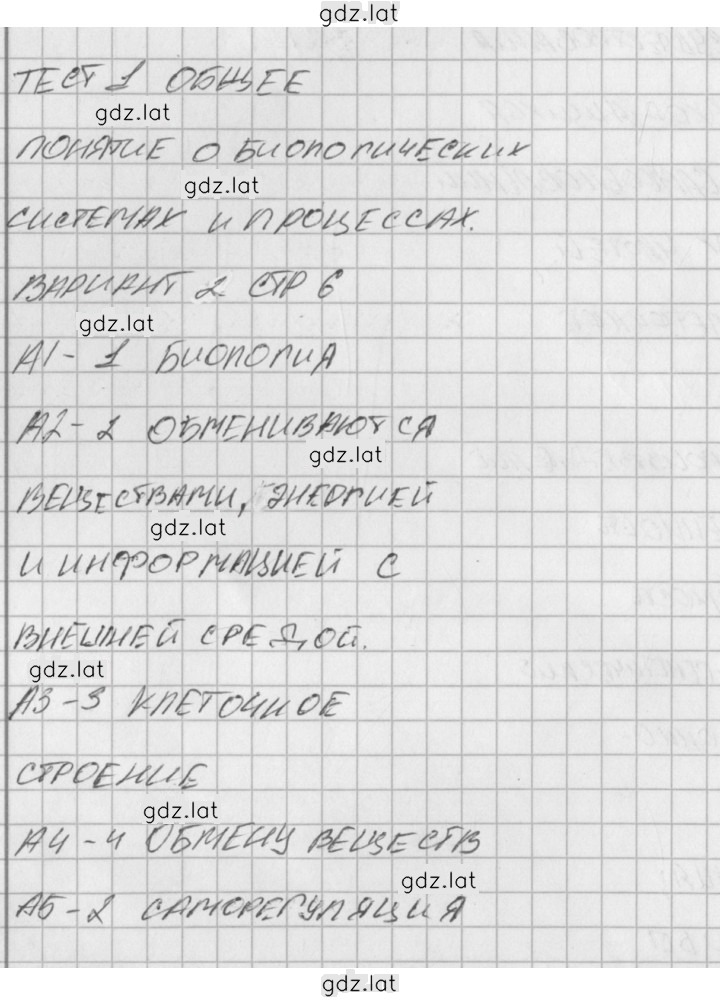 gdz.lat
ТЕСТ 1 ОБЩЕЕ
gdz.lat
ПОНЯТИЕ О БИОЛОГИЧЕСКИХ
gdz.lat
СИСТЕМАХ И ПРОЦЕССАХ.
ВАРИАНТ 2 СТР 6
gdz.lat
А1- 1 БИОЛОГИЯ
А2-2 ОБМЕНИВАЮТСЯ
gdz.lat
ВЕЩЕСТВАМИ, ЭНЕРГИЕЙ
gdz.lat
И ИНФОРМАЦИЕЙ С
ВНЕШНЕЙ СРЕДОЙ.
gdz.lat
А3-3 КЛЕТОЧНОЕ
СТРОЕНИЕ
gdz.lat
А4-4 ОБМЕНУ ВЕЩЕСТВ
gdz.lat
А5-2 САМОРЕГУЛЯЦИЯ
gdz.lat